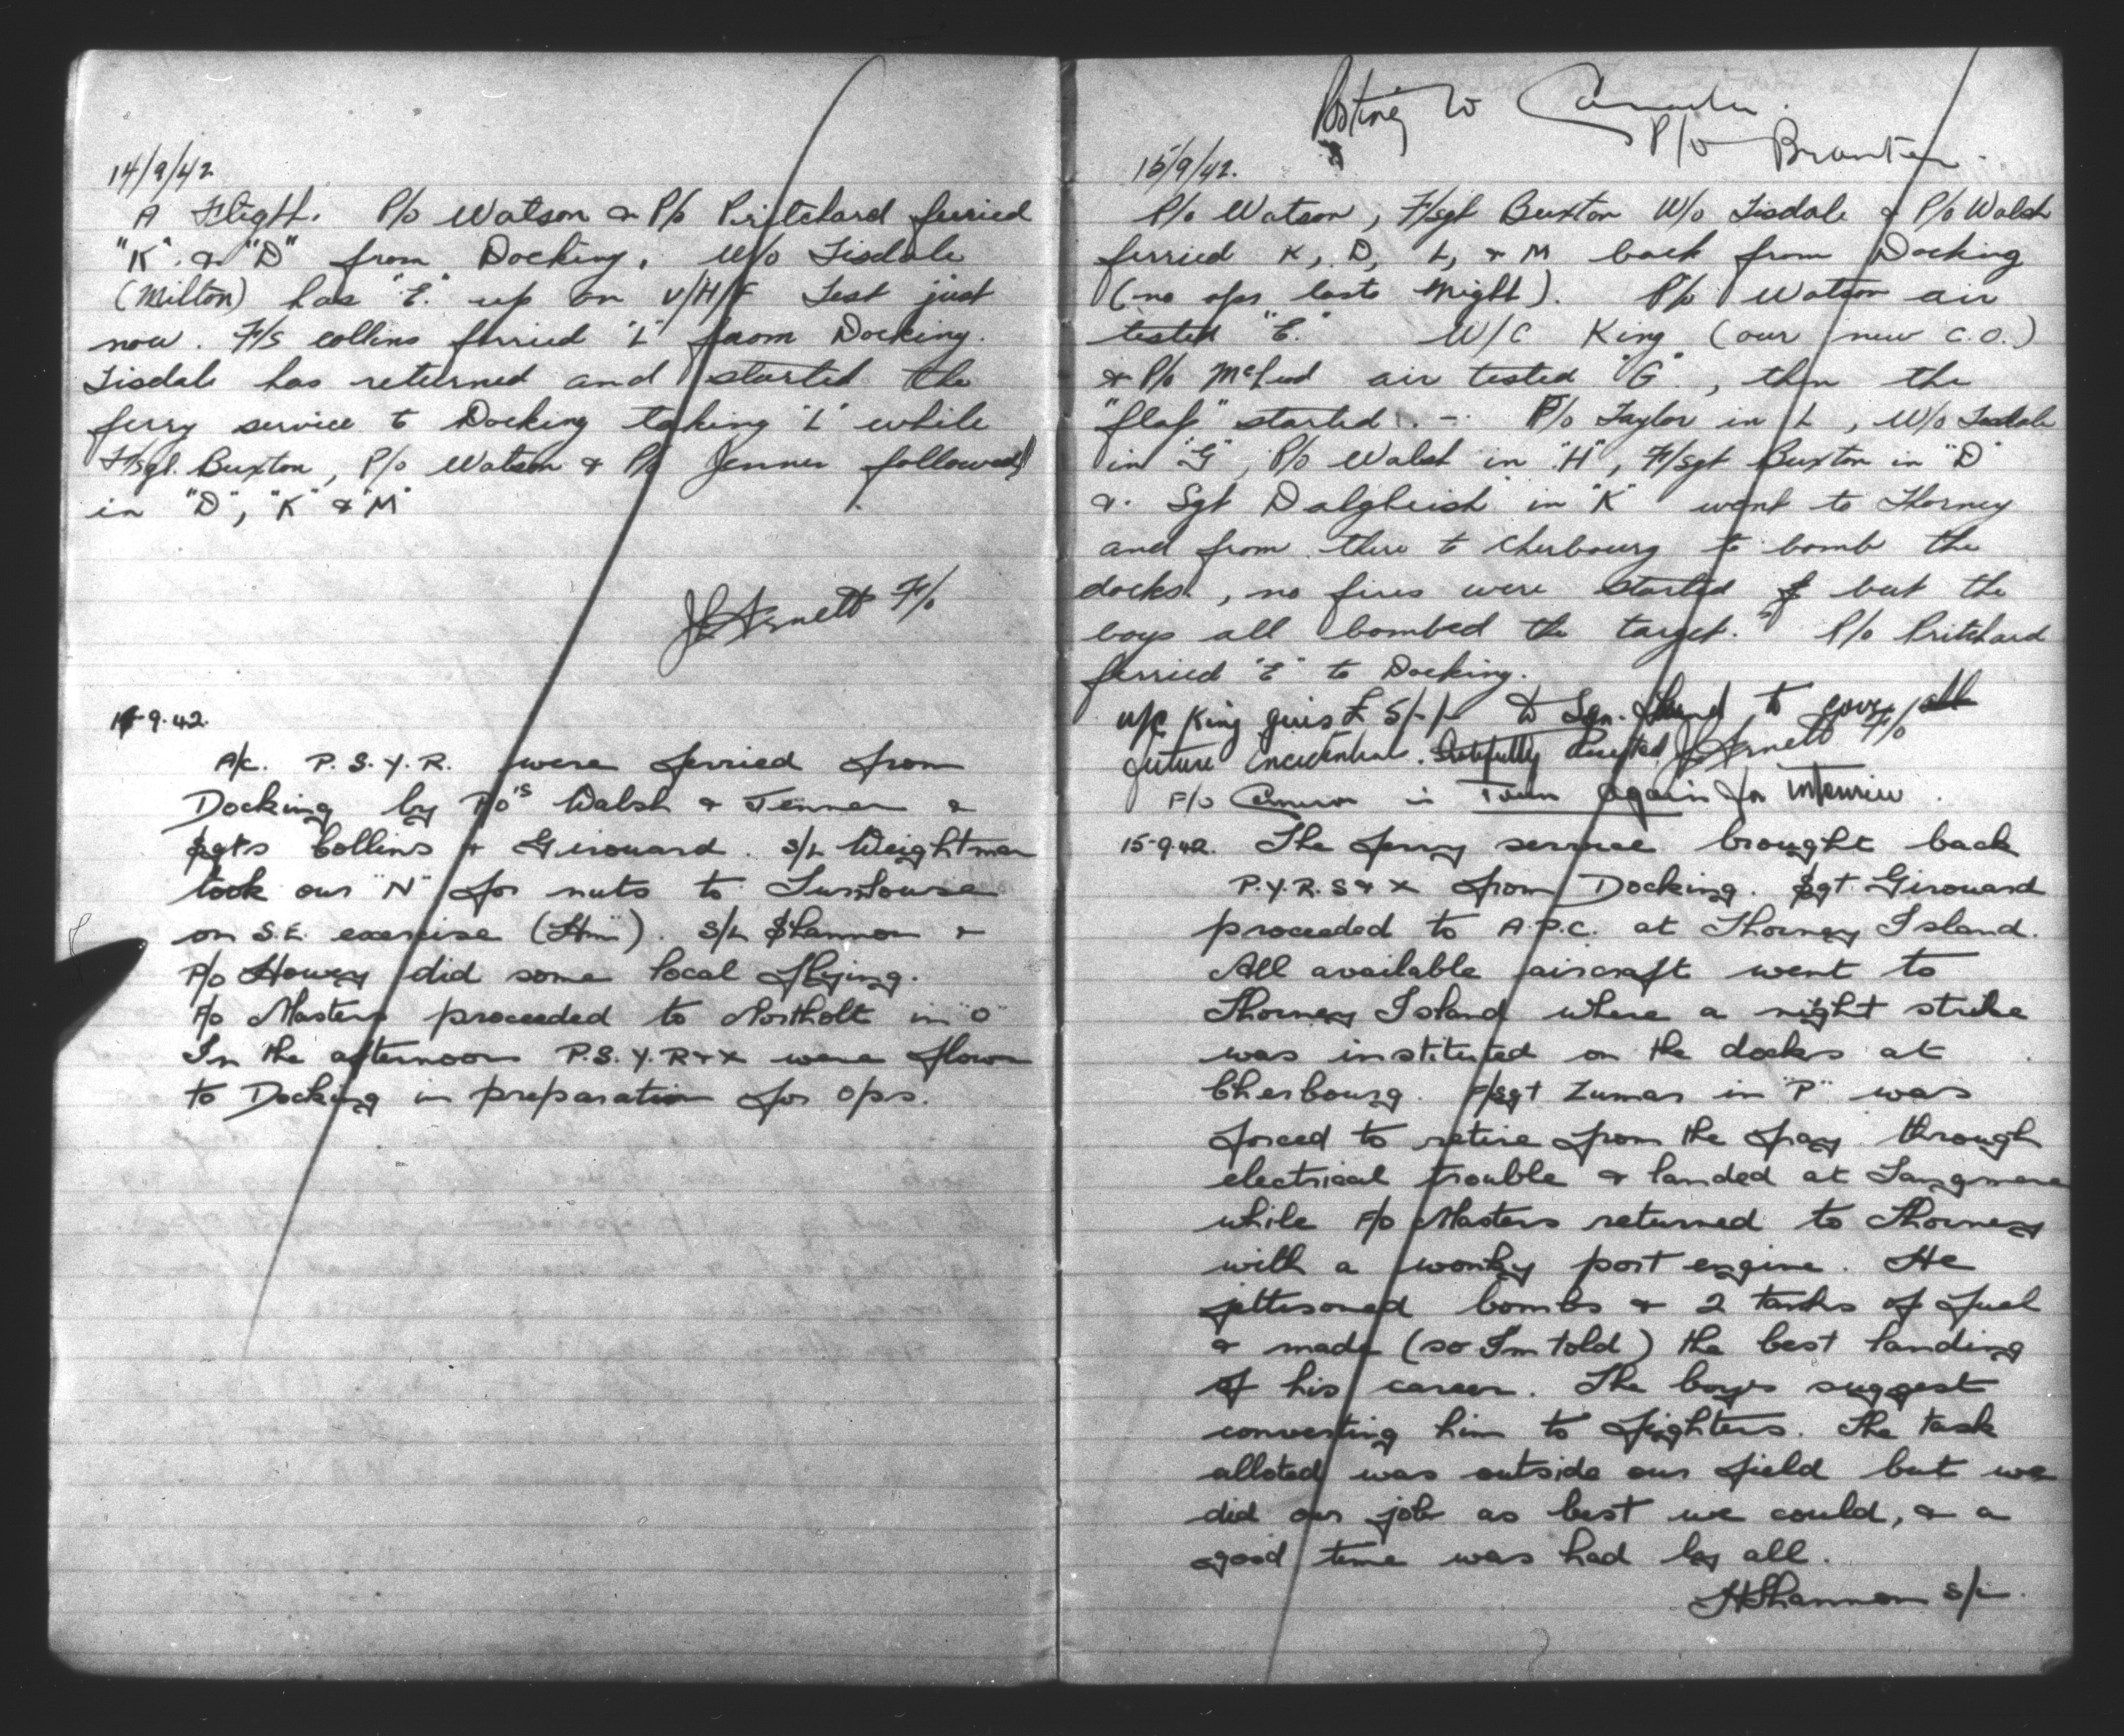 14/9/42
A Flight. P/o Watson & P/o Pritchard ferried
"K" & "D" from Docking. W/o Tisdale
(Milton) has "E" up on V/H/F Test just
now. F/S Collins ferried "L" from Docking.
Tisdale has returned and started the
ferry service to Docking taking "L" while
F/sgt. Buxton, P/o Watson & P/o Jenner followed
in "D", "K" & "M"
J Arnett F/o
14-9-42.
A/c. P.S.Y.R. were ferried from
Docking by P/o's Walsh & Jenner &
Sgts Collins & Girouard. S/L Weightman
took our "N" for nuts to Turnhouse
on S.E. exercise (Hm). S/L Shannon &
P/o Howey did some local flying.
F/o Masters proceeded to Northolt in "O"
In the afternoon P.S.Y.R & X were flown
to Docking in preparation for ops.
Posting to Canada.
P/o Brunton.
15/9/42.
P/o Watson, F/sgt Buxton W/o Tisdale & P/o Walsh
ferried K, D, L, & M back from Docking
(no ops last night). P/o Watson air
tested "E." W/C King (our new C.O.)
& P/o McLeod air tested "G", then the
"flap" started. - P/o Taylor in L, W/o Tisdale
in "G", P/o Walsh in "H", F/sgt Buxton in "D"
& Sgt Dalgleish in "K" went to Thorney
and from there to Cherbourg to bomb the
docks, no fires were started but the
boys all bombed the target." P/o Pritchard
ferried "E" to Docking.
W/C King gives £5/-/- to Sqn. Fund to cover all
future incidental. Gratefully Accepted J Arnett F/o
F/o Cameron is Town again for interview.
15-9-42. The ferry service brought back
P.Y.R.S & X from Docking. Sgt. Girouard
proceeded to A.P.C. at Thorney Island.
All available aircraft went to
Thorney Island where a night strike
was instituted on the docks at
Cherbourg. F/Sgt Zumar in "P" was
forced to retire from the fray through
electrical trouble & landed at Tangmere
while F/o Masters returned to Thorney
with a wonky port engine. He
jettisoned bombs & 2 tanks of fuel
& made (so I'm told) the best landing
of his career. The boys suggest
converting him to fighters. The task
alloted was outside our field but we
did our job as best we could, & a
good time was had by all.
H Shannon S/L.